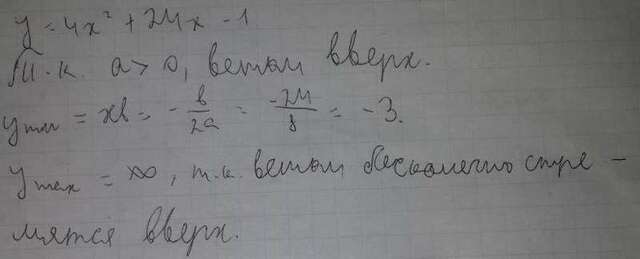 y = 4x² + 24x - 1
Т.к. a > 0, ветви вверх.
ymin = xв = -в/2a = -24/8 = -3.
ymax = ∞, т.к. ветви бесконечно стре -
мятся вверх.